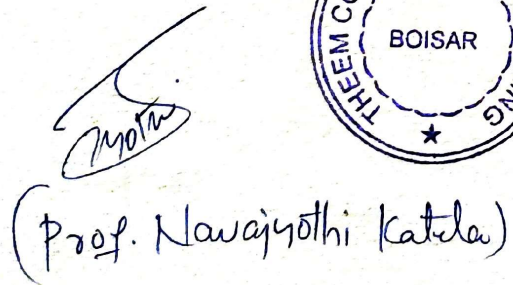 THEEM CO
BOISAR
NG
Jyothi
(Prof. Navajyothi Katela)